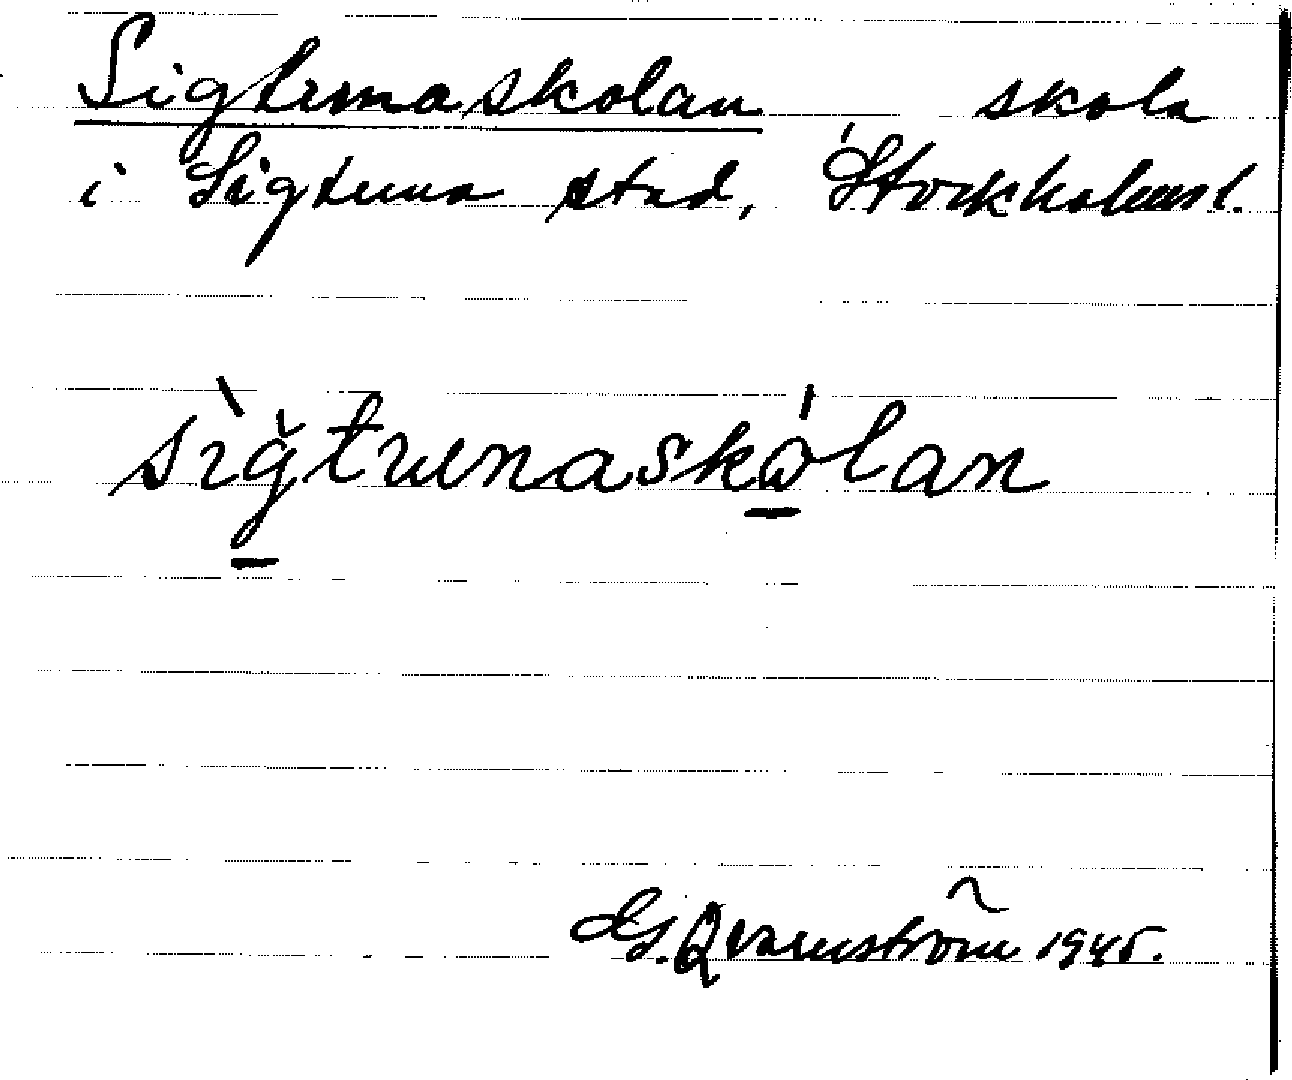 Sigtunaskolan skola
i Sigtuna stad, Stockholms l.
sìğtunaskólan
G. Qvarnström 1945.